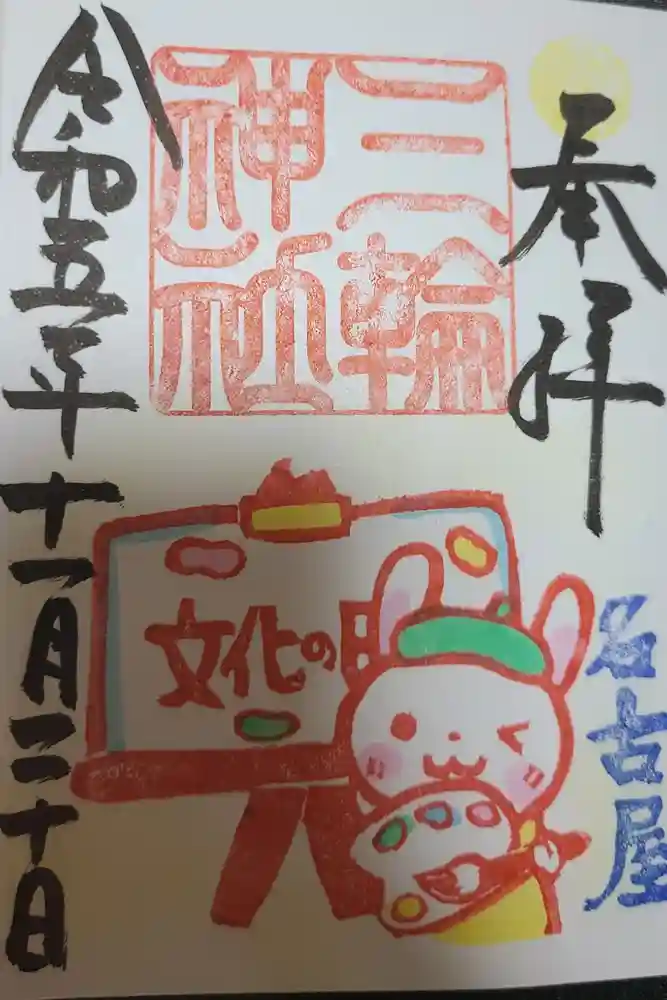 奉拝
名古屋
三輪
神社
文化の日
令和五年十一月二十日